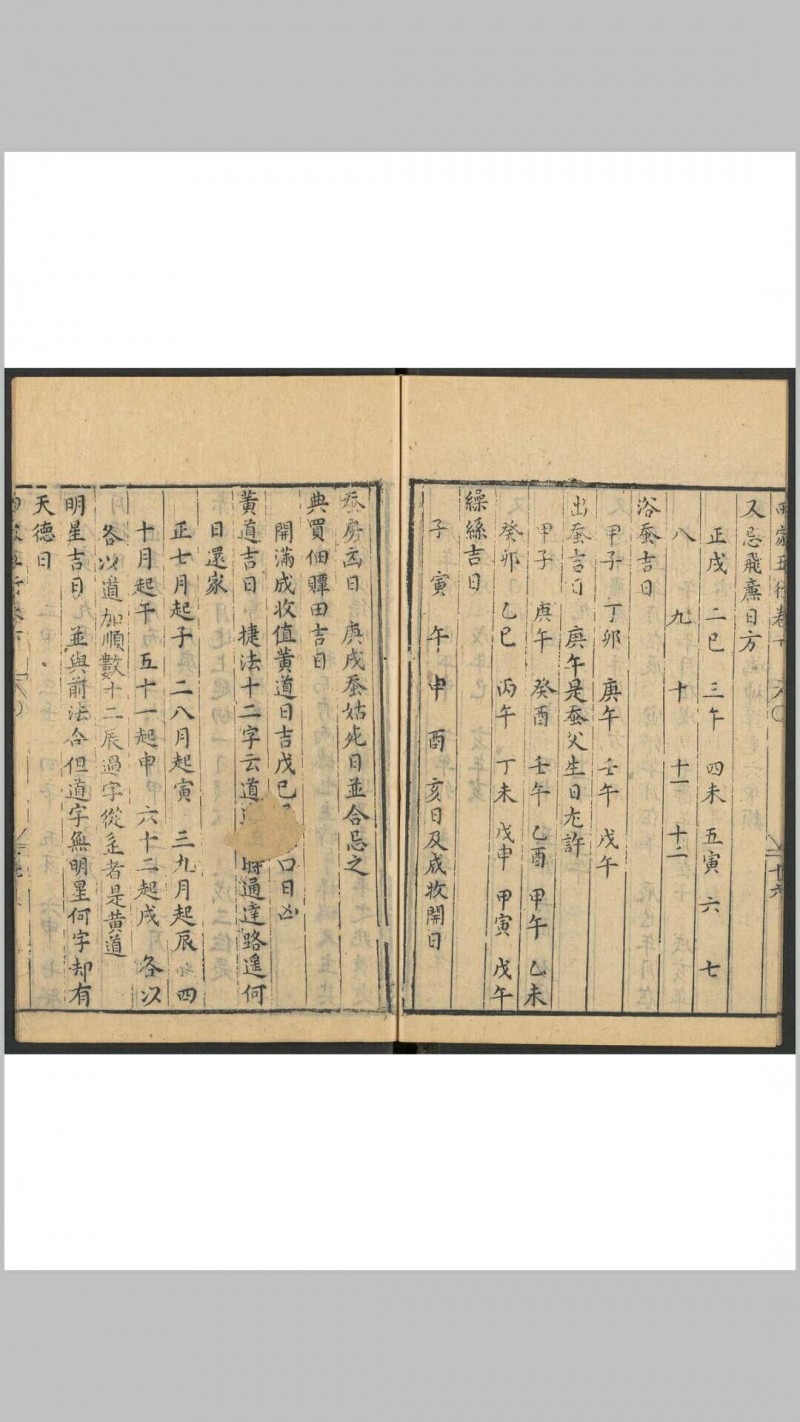 又忌飛廉日方
正戌 二巳 三午 四未 五寅 六 七
八 九 十 十一 十二
浴蚕吉日
甲子 丁卯 庚午 壬午 戊午
出蚕吉日 庚午是蚕父生日尤許
甲子 庚午 癸酉 壬午 乙酉 甲午 乙未
癸卯 乙巳 丙午 丁未 戊申 甲寅 戊午
繰絲吉日
子 寅 午 申 酉 亥日及成收開日
蚕房凶日 庚戌蚕姑死日並合忌之
典買佃賃田吉日
開滿成收值黃道日吉戊巳 口日凶
黃道吉日 捷法十二字云道 時通達路遥何
日還家
正七月起子 二八月起寅 三九月起辰 四
十月起午 五十一起申 六十二起戌 各以
各以道加順數十二辰過字從 者是黃道
明星吉日 並與前法合但道字無明星何字却有
天德日